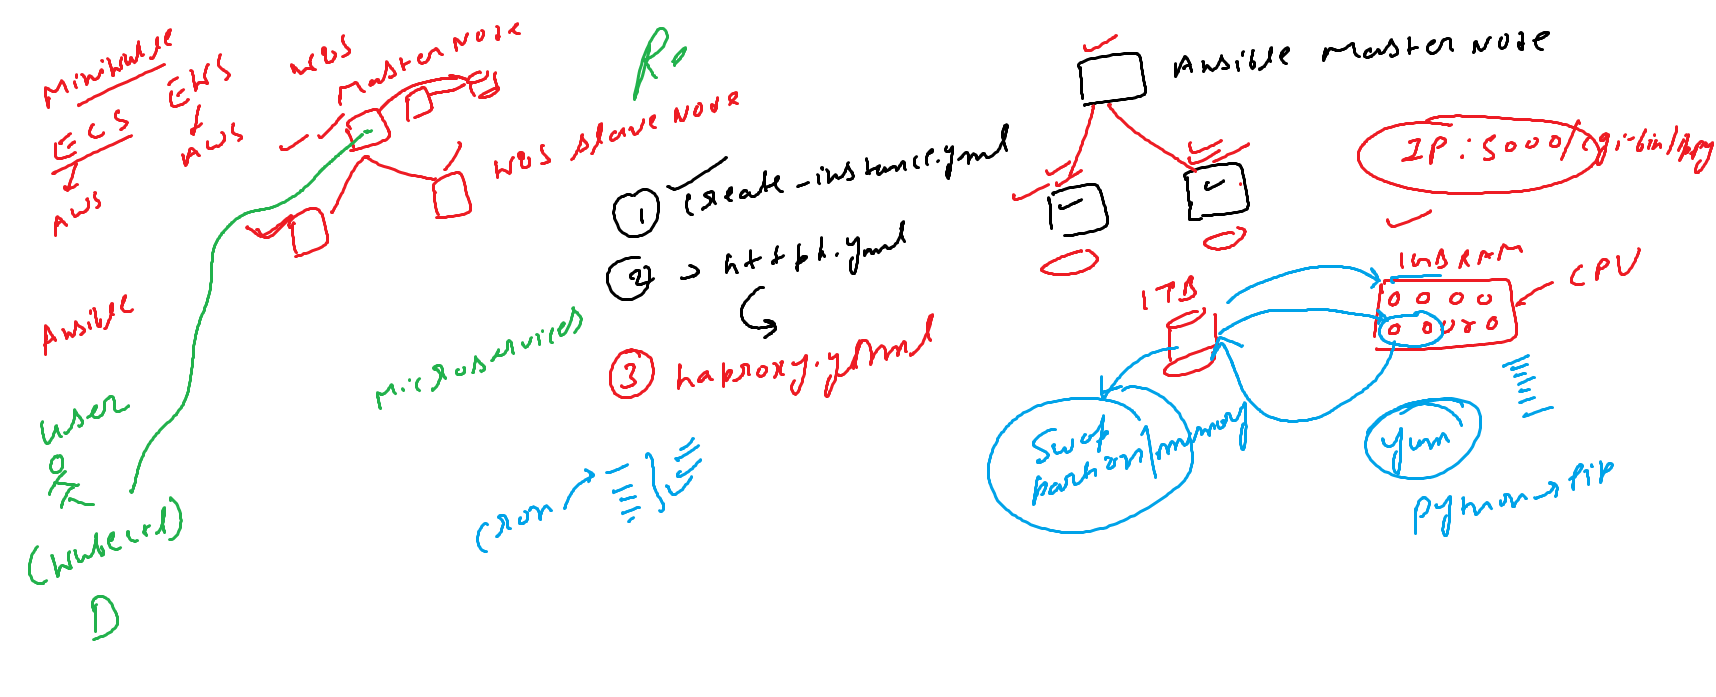 Minikube
ECS
AWS
EKS
AWS
K8S
Master Node
K8S Slave Node
Ansible
User
(kubectl)
D
Microservices
R
1 create-instance.yml
2 → httpd.yml
3 haproxy.yml
cron
Ansible Master Node
IP:5000/cgi-bin/
1TB
1GB RAM
CPU
Swap
partion/memory
yum
Python → pip